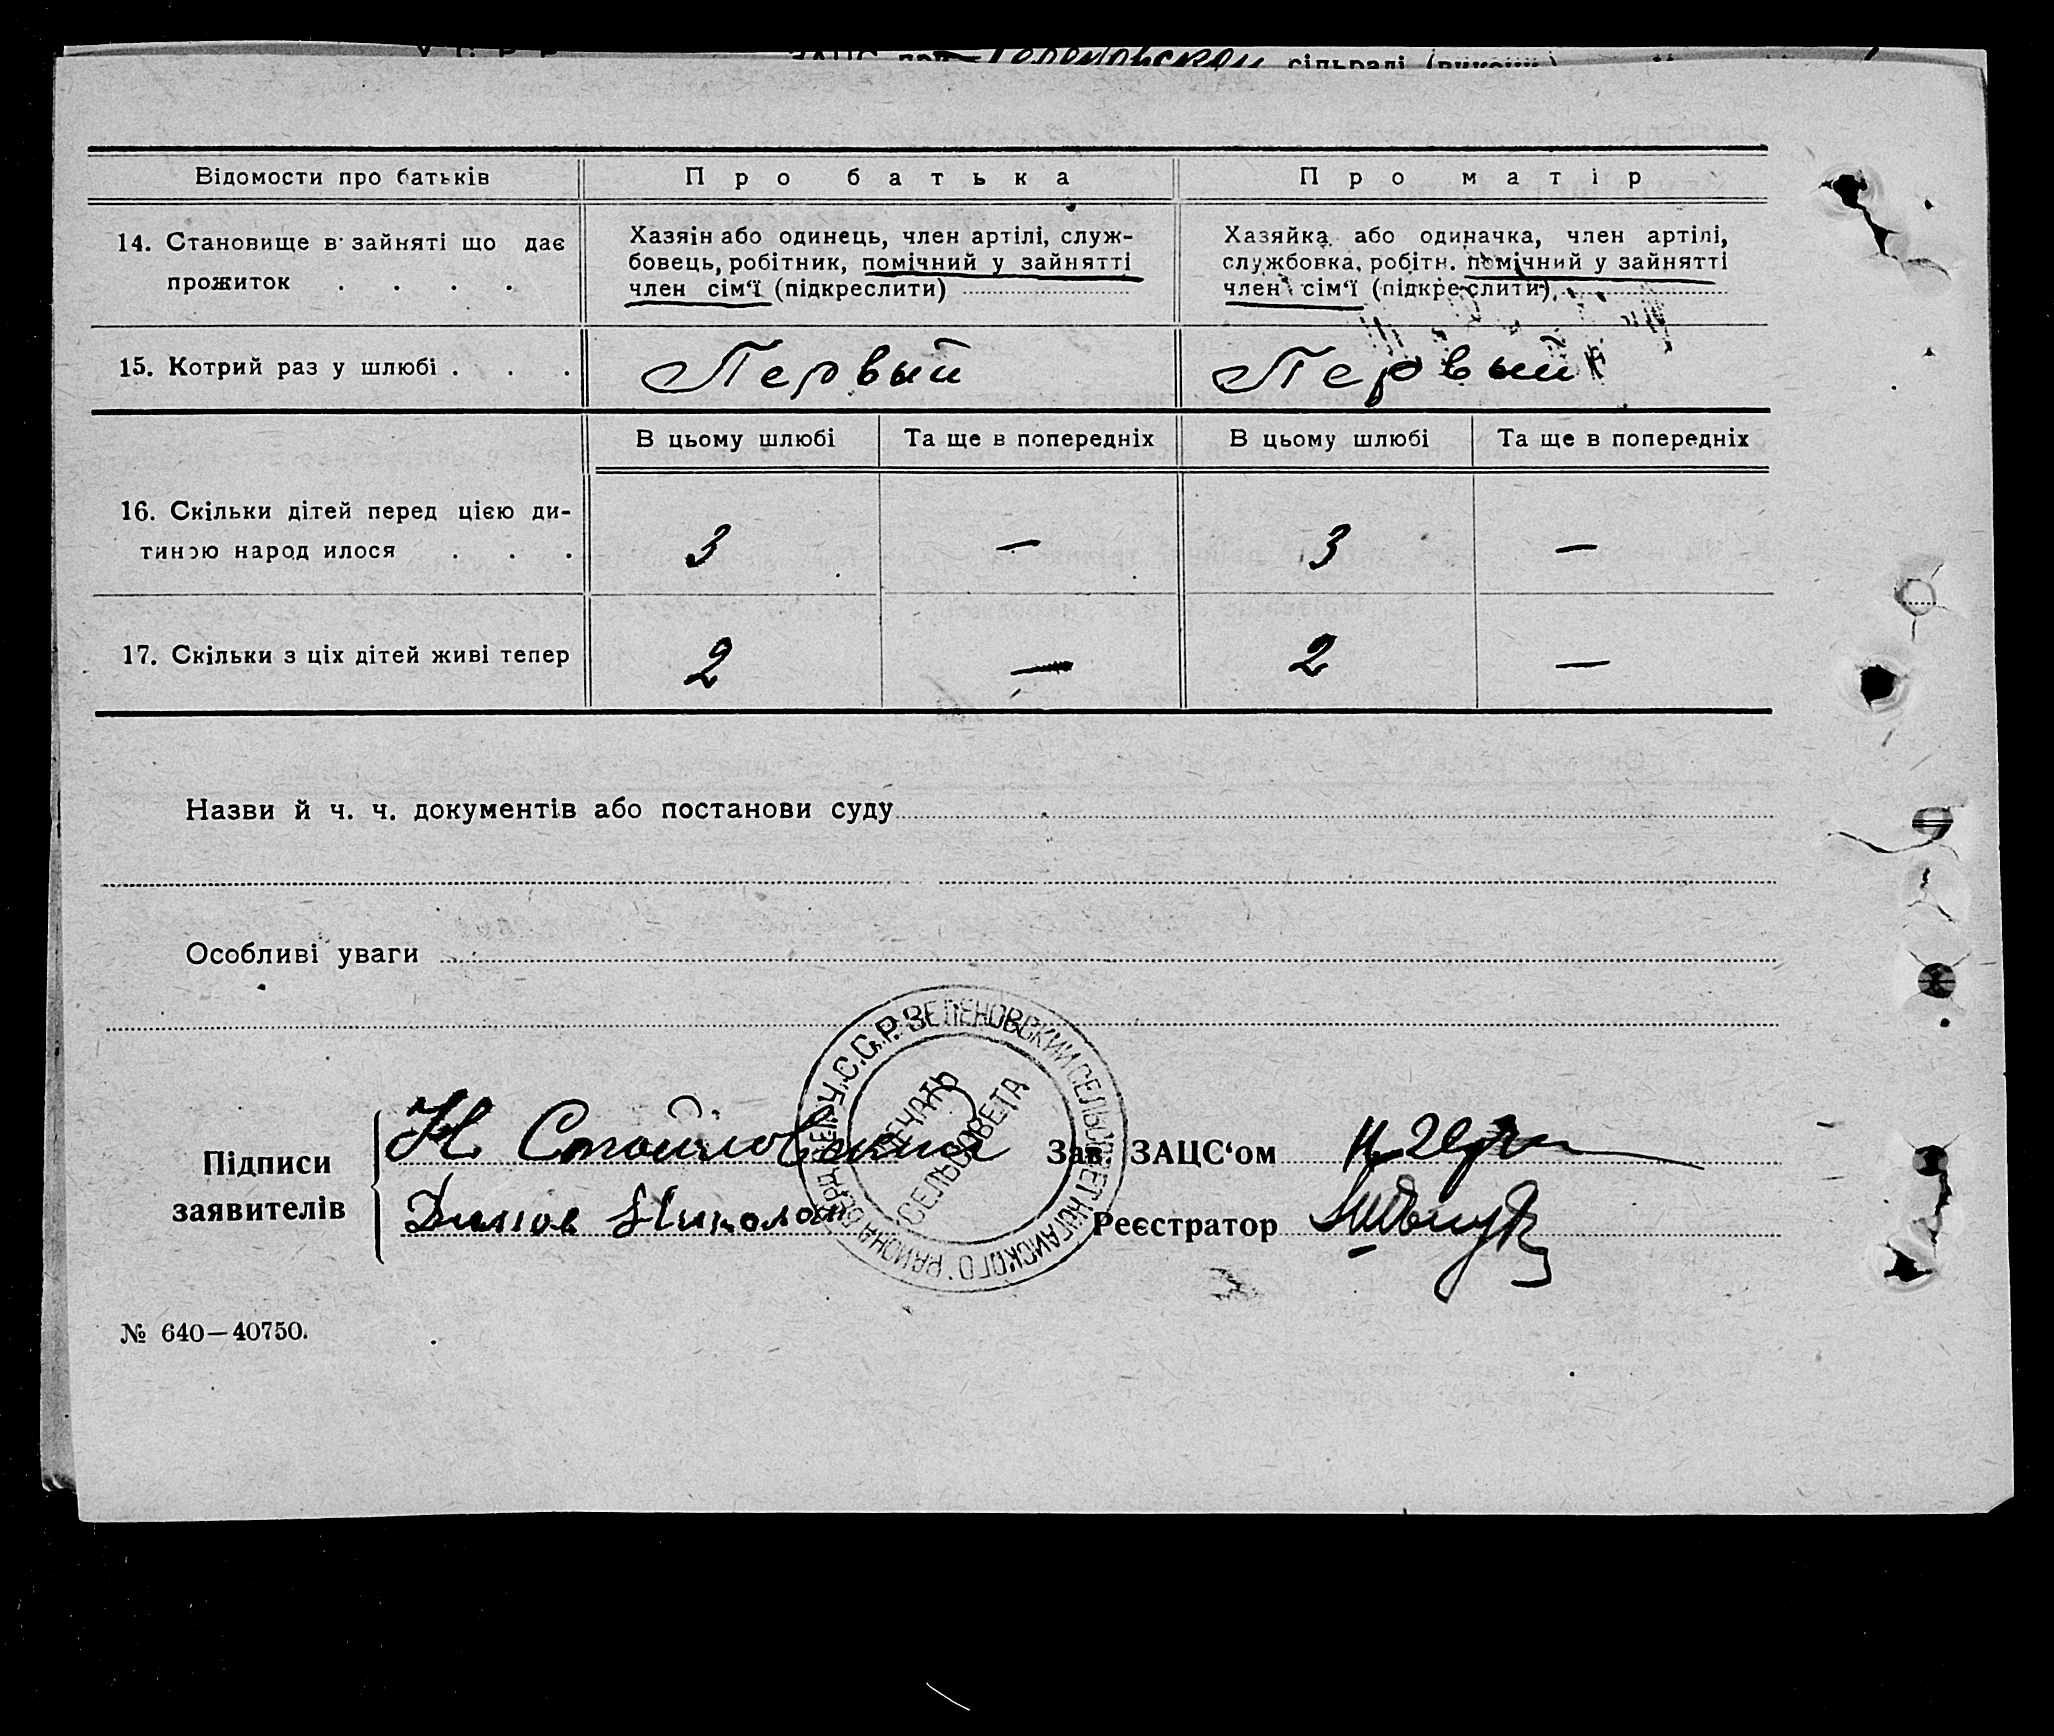 Відомости про батьків
Про батька
Про матір
14. Становище в зайняті що дає
прожиток . . . .
Хазяін або одинець, член артілі, служ-
бовець, робітник, помічний у зайнятті
член сім‘ї (підкреслити)
Хазяйка або одиначка, член артілі,
службовка, робітн. помічний у зайнятті
член сім‘ї (підкреслити)
15. Котрий раз у шлюбі . . .
Первый
Первый
В цьому шлюбі
Та ще в попередніх
В цьому шлюбі
Та ще в попередніх
16. Скільки дітей перед цією ди-
тиною народилося . . .
3
—
3
—
17. Скільки з ціх дітей живі тепер
2
—
2
—
Назви й ч. ч. документів або постанови суду
Особливі уваги
У.С.С.Р. ЗЕЛЕНОВСКИЙ СЕЛЬСОВЕТ НОГАЙСКОГО РАЙОНА
ПЕЧАТЬ
СЕЛЬСОВЕТА
Підписи
заявителів
Н
Димов Николай
Зав. ЗАЦС‘ом
Реєстратор
№ 640—40750.